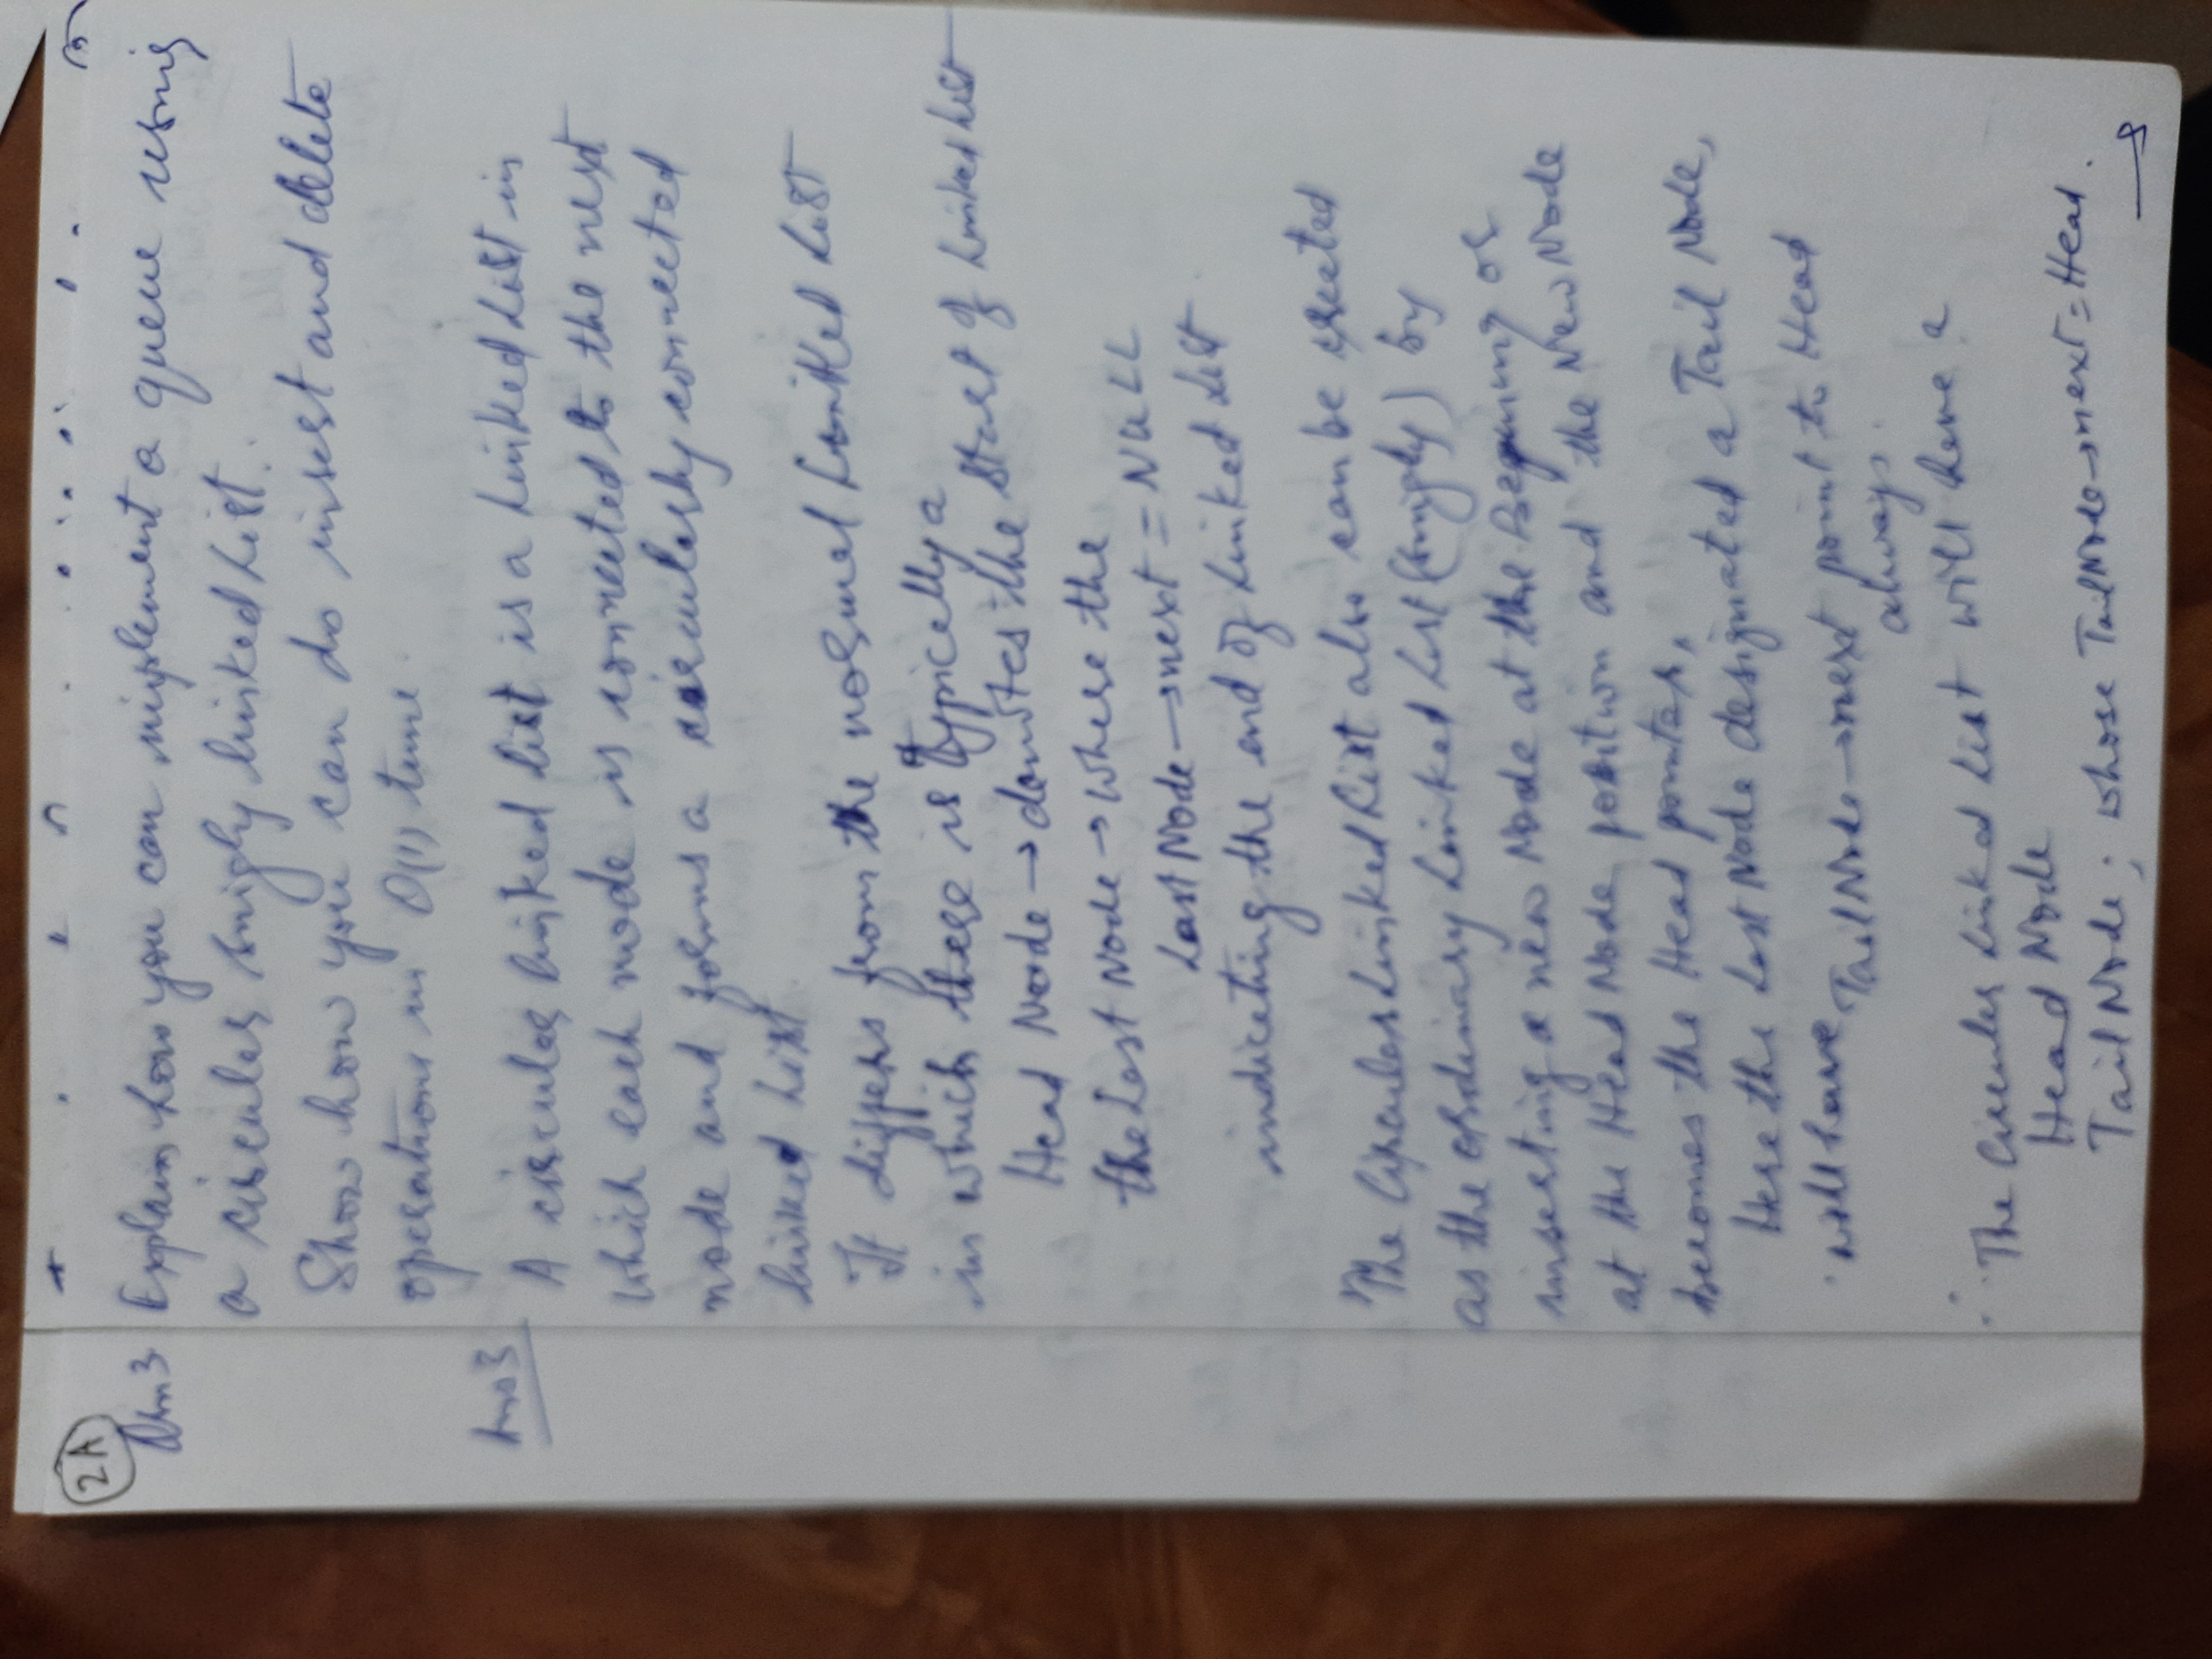 2A
Qsn 3 Explain how you can implement a queue using
a circular singly linked List.
Show how you can do insert and delete
operations in O(1) time.
Ans 3
A circular linked list is a Linked List in
which each node is connected to the next
node and forms a circularly connected
linked List.
It differs from the normal Linked List
in which there is typically a
Head Node → denotes the start of Linked List
the Last Node → where the
Last Node → next = NULL
indicating the end of Linked List
The Circular Linked List also can be created
as the ordinary Linked List (singly) by
inserting a new Node at the Begining or
at the Head Node position and the New Node
becomes the Head pointer,
Here the Last Node designated a Tail Node,
will have Tail Node → next point to Head
always.
The Circular Linked List will have a
Head Node
Tail Node; whose Tail Node → next = Head.